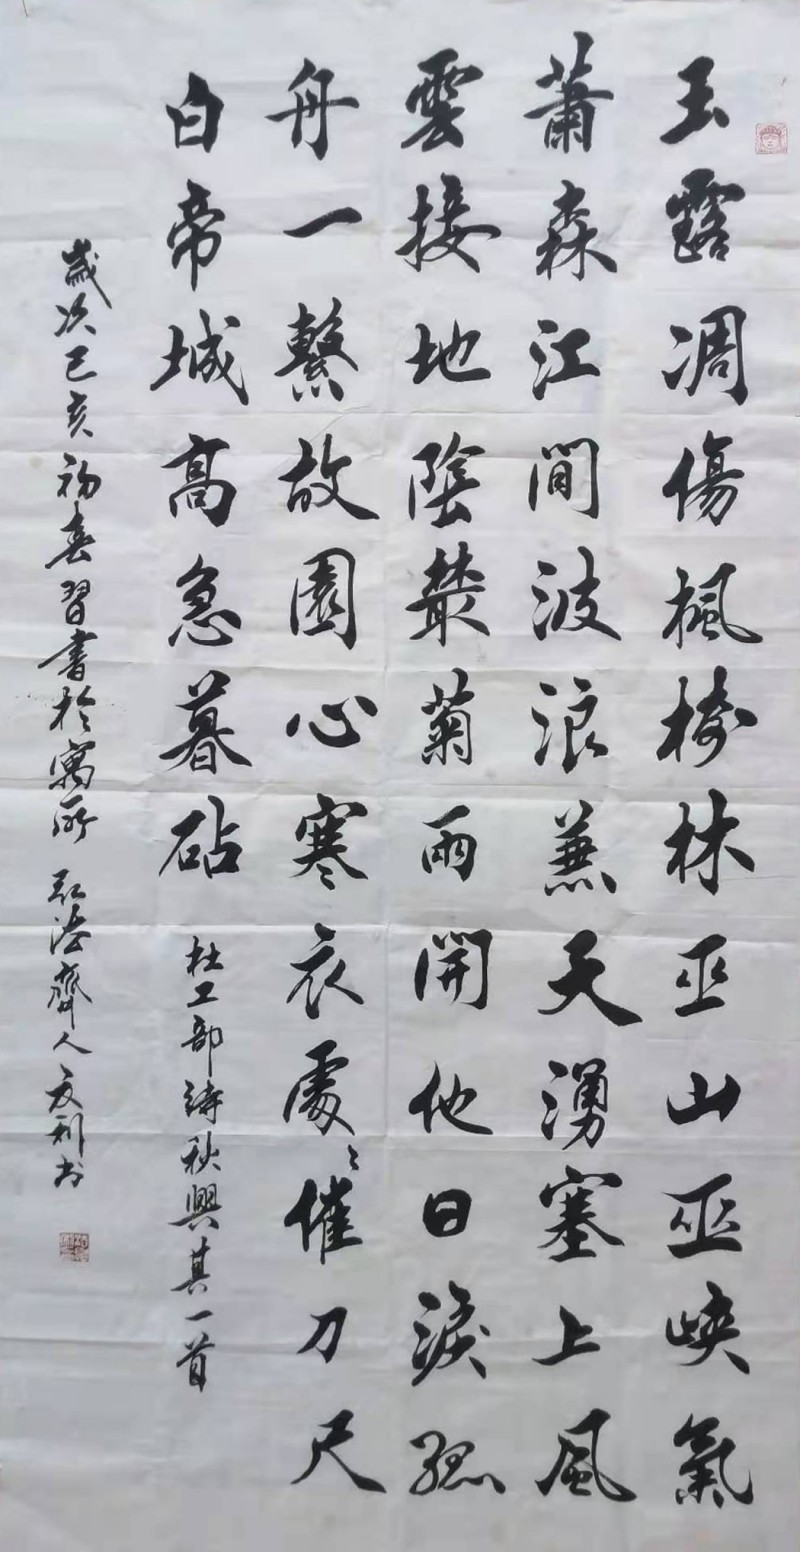 玉露凋傷楓樹林巫山巫峽氣
蕭森江間波浪兼天湧塞上風
雲接地陰叢菊兩開他日淚孤
舟一繫故園心寒衣處々催刀尺
白帝城高急暮砧
杜工部詩秋興其一首
歲次己亥初春習書於寓所 齋人友利书